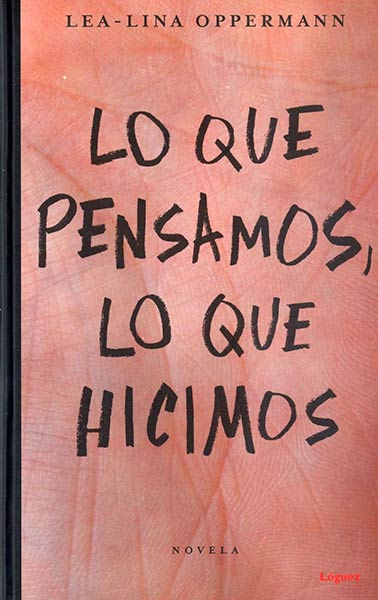 LEA-LINA OPPERMANN
LO QUE
PENSAMOS,
LO QUE
HICIMOS
NOVELA
Lóguez